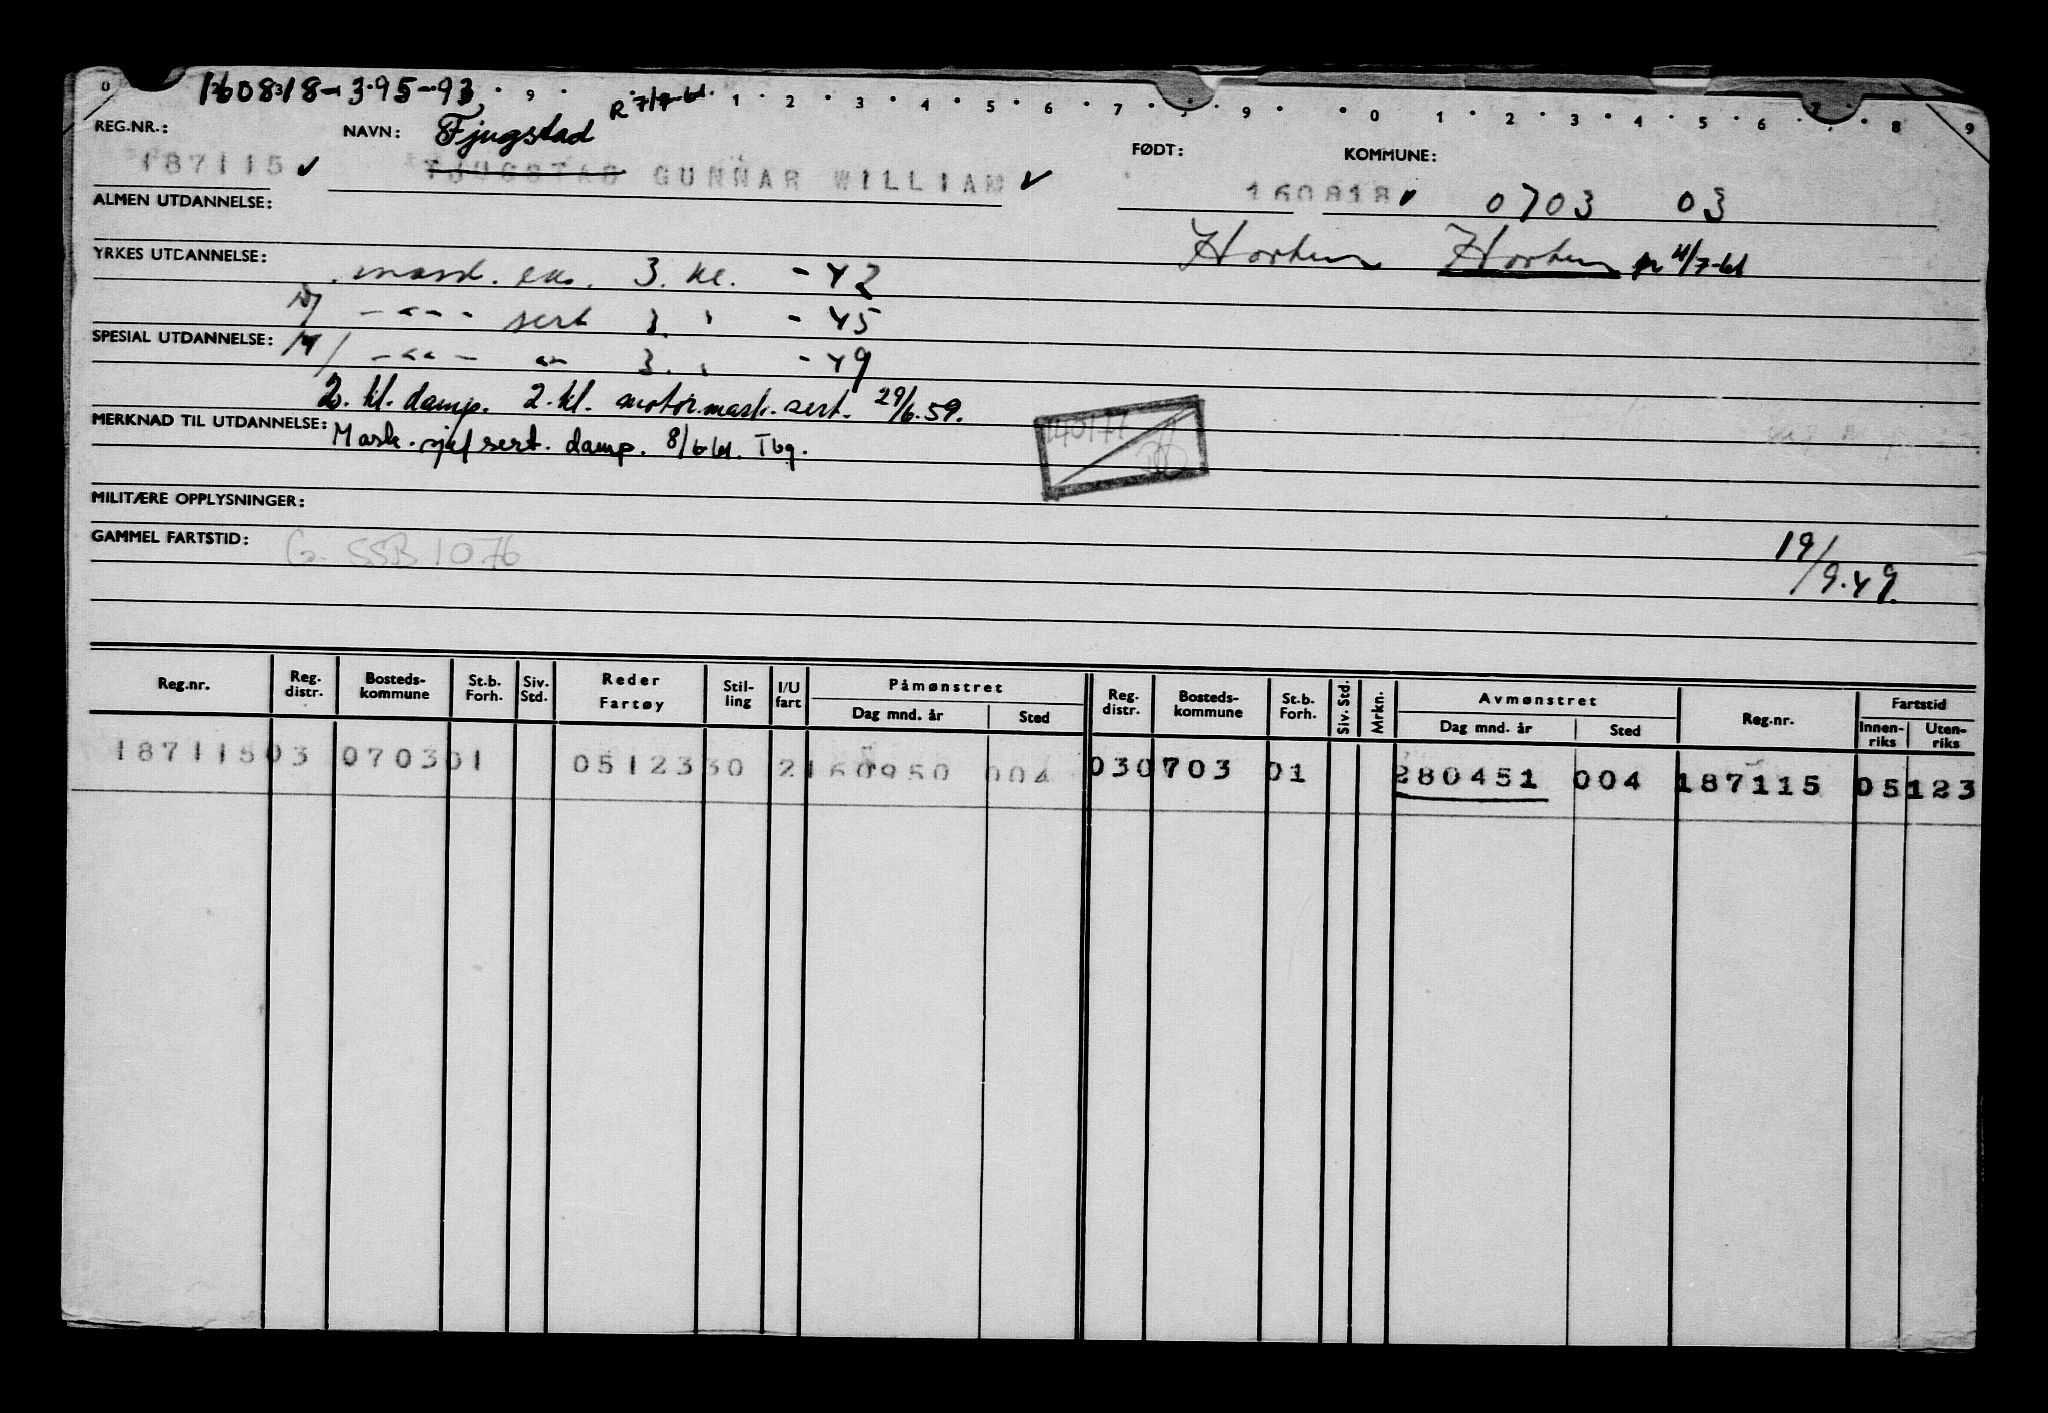 160818-3.95-93.
0 9 1 2 3 4 5 6 7 8 9 0 1 2 3 4 5 6 7 8 9
R 7/7-61.
REG.NR.: NAVN: Fjugstad FØDT: KOMMUNE:
187115 ✓ TJUGSTAD GUNNAR WILLIAM ✓ 160818 0703 03
ALMEN UTDANNELSE:
Horten Horten 4/7-61
YRKES UTDANNELSE: mask. eks. 3. kl. - 42
- " - sert 3. " - 45
SPESIAL UTDANNELSE: - " - " 3. " - 49
2. kl. damp. 2. kl. motor.mask. sert. 29/6.59.
MERKNAD TIL UTDANNELSE: Mask. sjef sert. damp. 8/6 61. Tbg.
140177
MILITÆRE OPPLYSNINGER:
GAMMEL FARTSTID: SSB 1076
19/9.49.
Reg.nr. Reg. distr. Bosteds- kommune St.b. Forh. Siv. Std. Reder Fartøy Stil- ling I/U fart Påmønstret Dag mnd. år Sted Reg. distr. Bosteds- kommune St.b. Forh. Siv. Std. Mrkn. Avmønstret Dag mnd. år Sted Reg.nr. Fartstid Innen- riks Uten- riks
187115 03 0703 01 05123 30 2 160950 004 03 0703 01 280451 004 187115 05123